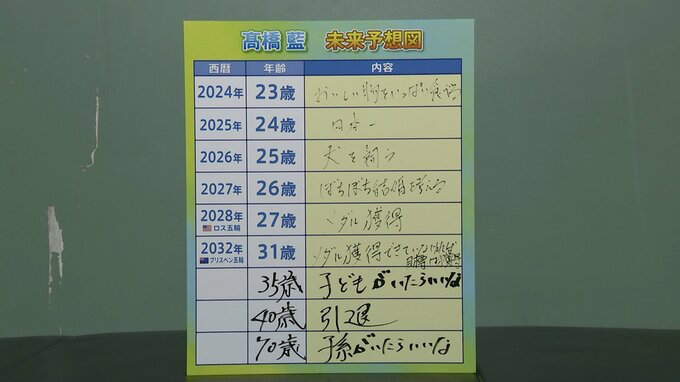 髙橋 藍 未来予想図
西暦 年齢 内容
2024年 23歳 おいしい肉をいっぱい食べる
2025年 24歳 日本一
2026年 25歳 犬を飼う
2027年 26歳 ぼちぼち結婚を考える
2028年 ロス五輪 27歳 メダル獲得
2032年 ブリスベン五輪 31歳 メダル獲得できていなければ
35歳 子どもがいたらいいな
40歳 引退
70歳 子孫がいたらいいな